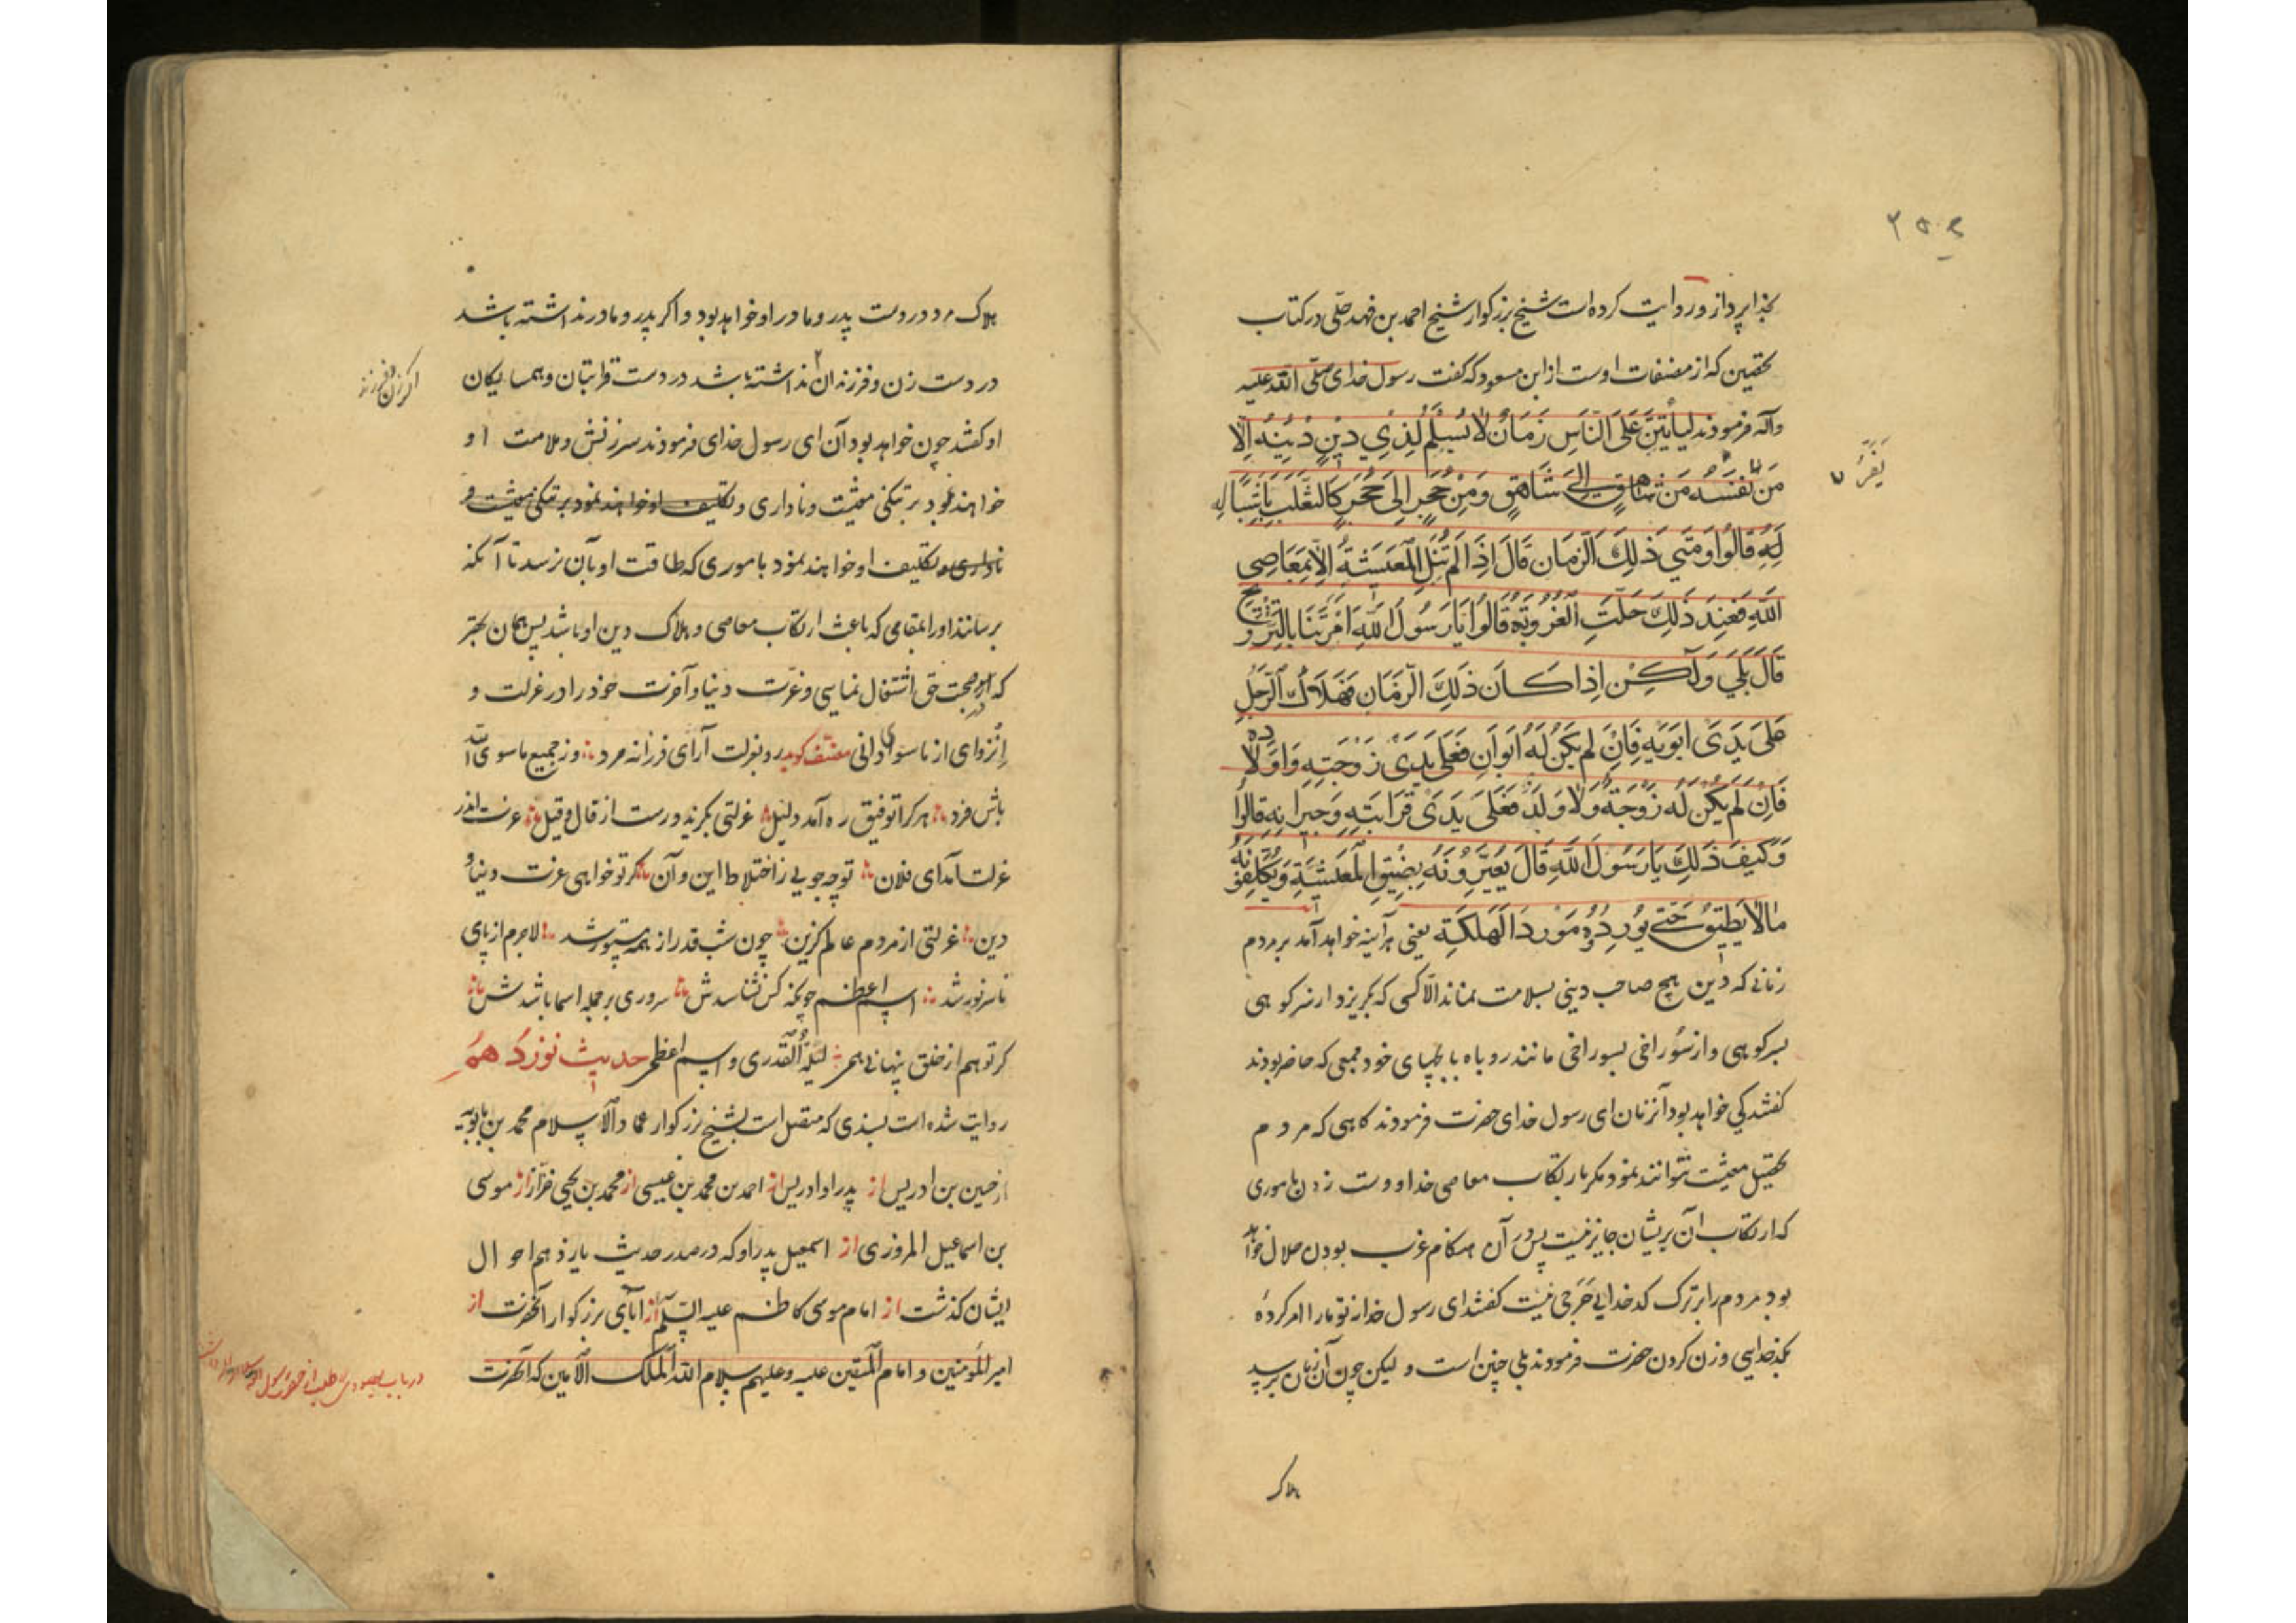 بخدا پردازد و روایت کرده است شیخ بزرگوار شیخ احمد بن فهد حلّی در کتاب
تحصین که از مصنفات اوست از ابن مسعود که گفت رسول خدای صلّی الله علیه
وآله فرمودند لَیَأتِیَنَّ عَلَی النّاسِ زَمَانٌ لا یَسْلَمُ لِذِي دِینٍ دِینُهُ اِلّا
یَفِرُّ
مَن مِن شَاهِقٍ اِلیٰ شَاهِقٍ وَمِنْ حُجْرٍ اِلیٰ حُجْرٍ کَالثَّعْلَبِ بِاَشْبَالِهِ
قَالُوا وَمَتیٰ ذٰلِكَ الزَّمَان قَالَ اِذَا لَمْ تُنَلِ المَعِیشَةُ اِلّا بِمَعَاصِي
اللّهِ فَعِنْدَ ذٰلِكَ حَلَّتِ العُزُوبَةُ قَالُوا یَا رَسُولَ اللّهِ اَمَرْتَنَا بِالتَّزْوِیج
قَالَ بَلیٰ وَلٰکِنْ اِذَا کَانَ ذٰلِكَ الزَّمَان فَهَلَاكُ الرَّجُلِ
عَلیٰ یَدَیْ اَبَوَیْهِ فَاِنْ لَمْ یَکُنْ لَهُ اَبَوَانِ فَعَلیٰ یَدَیْ زَوْجَتِهِ وَاَوْلَادِهِ
فَاِنْ لَمْ یَکُنْ لَهُ زَوْجَةٌ وَلَا وَلَدٌ فَعَلیٰ یَدَیْ قَرَابَتِهِ وَجِیرَانِهِ قَالُوا
وَکَیْفَ ذٰلِكَ یَا رَسُولَ اللّهِ قَالَ یُعَیِّرُونَهُ بِضِیقِ المَعِیشَةِ وَیُکَلِّفُونَهُ
مَا لَا یُطِیقُ حَتّیٰ یُورِدُوهُ مَوْرِدَ الهَلَکَةِ یعنی هرآینه خواهد آمد بر مردم
زمانی که دین هیچ صاحب دینی بسلامت نماند الّا کسی که بگریزد از سر کوهی
بسر کوهی و از سوراخی بسوراخی مانند روباه با بچهای خود جمعی که حاضر بودند
گفتند کی خواهد بود آنزمان ای رسول خدای حضرت فرمودند گاهی که مردم
تحصیل معیشت نتوانند نمود مگر بارتکاب معاصی خدا و دست زدن بأموری
که ارتکاب آن بریشان جایز نیست پس در آن هنگام عزب بودن حلال خواهد
بود مردم را بر ترک کدخدایی حرجی نیست گفتند ای رسول خدا تو ما را امر کردهٔ
بکدخدایی و زن کردن حضرت فرمودند بلی چنین است ولیکن چون آن زمان برسد
هلاک
هلاک مرد در دست پدر و مادر او خواهد بود و اگر پدر و مادر نداشته باشد
در دست زن و فرزندان نداشته باشد در دست قرابتان و همسایگان
اگر زن و فرزند
او گفتند چون خواهد بود آن ای رسول خدای فرمودند سرزنش و ملامت او
خواهند نمود بر تنگی معیشت و ناداری و تکلیف او خواهند نمود بر تنگی معیشت و
ناداری و تکلیف او خواهند نمود بأموری که طاقت او بآن نرسد تا آنکه
برسانند او را بمقامی که باعث ارتکاب معاصی و هلاک دین او باشد پس همان بهتر
که در محبت حق اشتغال نمایی و عزّت دنیا و آخرت خود را در عزلت و
اِنزوای از ما سوا دانی مصنّف گوید رو بعزلت آرای فرزانه مرد وز جمیع ما سوی الله
باش فرد هر کرا توفیق ره آمد دلیل عزلتی بگزید و رست از قال و قیل عزت اندر
عزلت آمد ای فلان تو چه جویی ز اختلاط این و آن گر تو خواهی عزت دنیا و
دین عزلتی از مردم عالم گزین چون شب قدر از همه مستور شد لاجرم از پای
تا سر نور شد اسم اعظم چونکه کس نشناسدش سروری بر جمله اسما باشدش
گر تو هم از خلق پنهانی همی لیلةالقدری و اسم اعظمی حدیث نوزدهم
روایت شده است بسندی که متصل است بشیخ بزرگوار عماد الاسلام محمد بن بابویه
از حسین بن ادریس از پدر او ادریس از احمد بن محمد بن عیسی از محمد بن یحیی خزّاز از موسی
بن اسماعیل المروزی از اسمعیل پدر او که در صدر حدیث یازدهم احوال
ایشان گذشت از امام موسی کاظم علیه السّلام از آبای بزرگوار آنحضرت از
امیر المؤمنین و امام المتقین علیه و علیهم سلام الله الملک الامین که آنحضرت